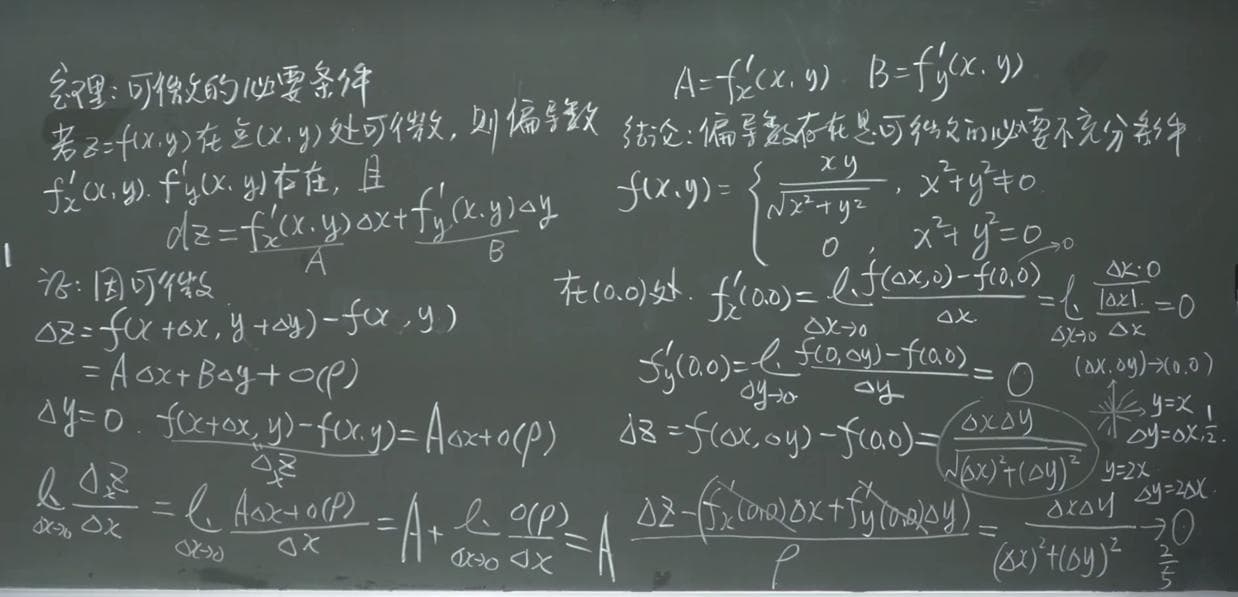 定理：可微的必要条件
若z=f(x,y)在点(x,y)处可微，则偏导数
f'x(x,y). f'y(x,y)存在，且
dz=f'x(x,y)Δx+f'y(x,y)Δy
A B
证：因可微
Δz=f(x+Δx, y+Δy)-f(x,y)
=AΔx+BΔy+o(ρ)
Δy=0. f(x+Δx,y)-f(x,y)=AΔx+o(ρ)
Δxz
lim Δx→0 Δxz/Δx = lim Δx→0 (AΔx+o(ρ))/Δx = A+ lim Δx→0 o(ρ)/Δx = A
A=f'x(x,y) B=f'y(x,y)
结论：偏导数存在是可微的必要不充分条件
f(x,y)={ xy/√(x²+y²), x²+y²≠0
0, x²+y²=0
在(0,0)处. f'x(0,0)= lim Δx→0 (f(Δx,0)-f(0,0))/Δx = lim Δx→0 (Δx·0/|Δx|)/Δx =0
→0
f'y(0,0)= lim Δy→0 (f(0,Δy)-f(0,0))/Δy = 0
(Δx,Δy)→(0,0)
y=x
Δy=Δx, 1/2
Δz=f(Δx,Δy)-f(0,0)= ΔxΔy/√((Δx)²+(Δy)²)
y=2x
Δy=2Δx
(Δz-(f'x(0,0)Δx+f'y(0,0)Δy))/ρ = ΔxΔy/((Δx)²+(Δy)²) →0
2/5